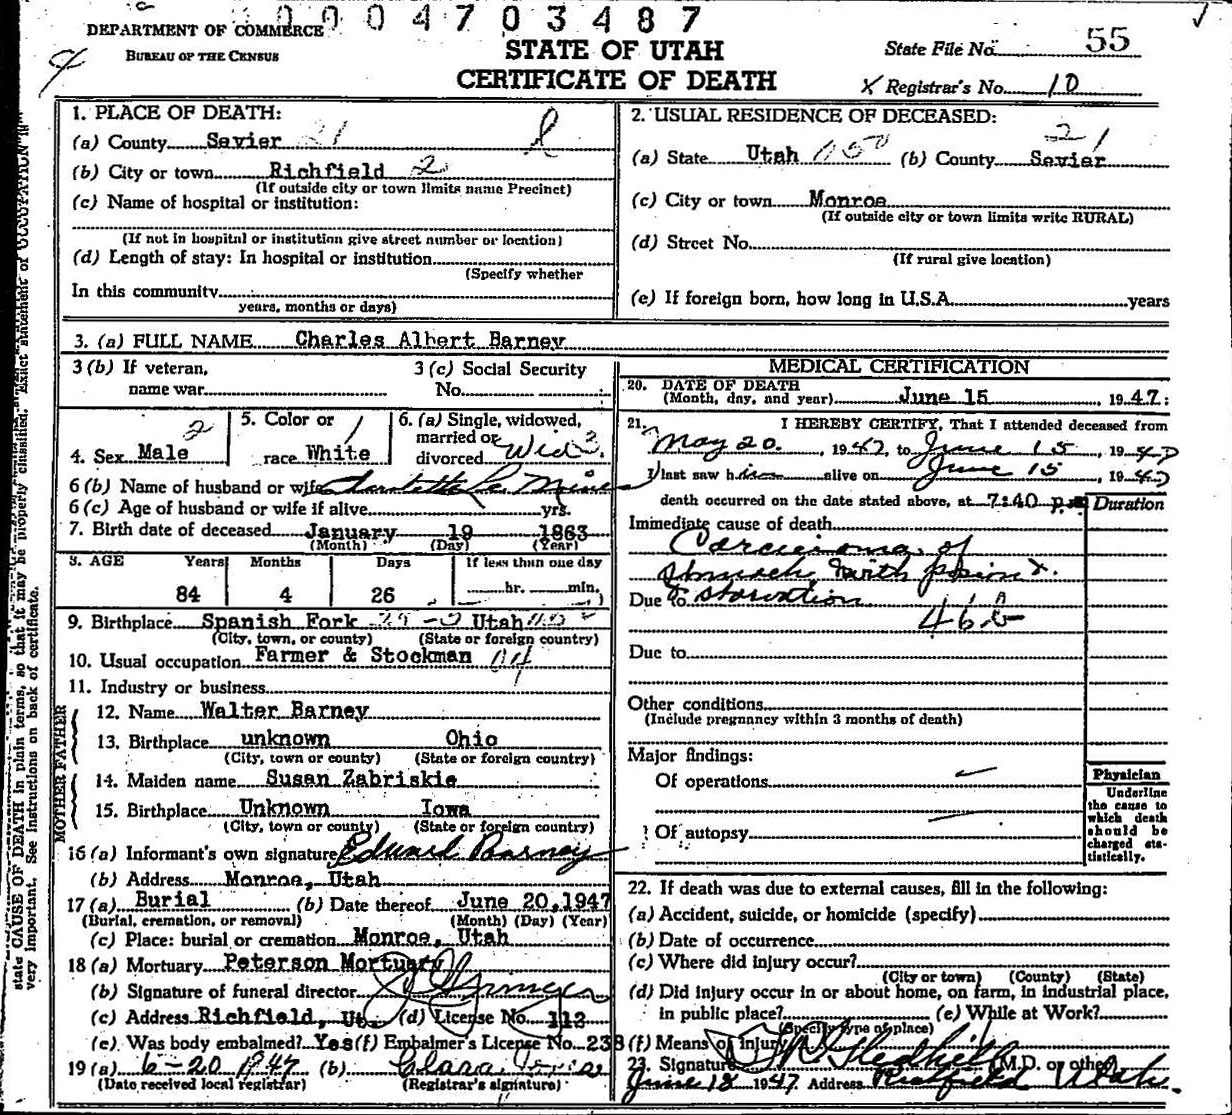 0004703487
DEPARTMENT OF COMMERCE
BUREAU OF THE CENSUS
STATE OF UTAH
CERTIFICATE OF DEATH
State File No. 55
X Registrar's No. 10
1. PLACE OF DEATH:
(a) County Sevier 21
(b) City or town Richfield 2
(If outside city or town limits name Precinct)
(c) Name of hospital or institution:
(If not in hospital or institution give street number or location)
(d) Length of stay: In hospital or institution
(Specify whether
In this community
years, months or days)
2. USUAL RESIDENCE OF DECEASED:
21
(a) State Utah (b) County Sevier
(c) City or town Monroe
(If outside city or town limits write RURAL)
(d) Street No.
(If rural give location)
(e) If foreign born, how long in U.S.A. years
3. (a) FULL NAME Charles Albert Barney
3 (b) If veteran,
name war
3 (c) Social Security
No.
4. Sex Male 2
5. Color or
race White 1
6. (a) Single, widowed,
married or
divorced Wid 3
6 (b) Name of husband or wife
6 (c) Age of husband or wife if alive yrs.
7. Birth date of deceased January 19 1863
(Month) (Day) (Year)
8. AGE Years Months Days If less than one day
84 4 26 hr. min.
9. Birthplace Spanish Fork Utah
(City, town, or county) (State or foreign country)
10. Usual occupation Farmer & Stockman
11. Industry or business
FATHER
12. Name Walter Barney
13. Birthplace unknown Ohio
(City, town or county) (State or foreign country)
MOTHER
14. Maiden name Susan Zabriskie
15. Birthplace Unknown Iowa
(City, town or county) (State or foreign country)
16 (a) Informant's own signature Edward Barney
(b) Address Monroe, Utah
17 (a) Burial (b) Date thereof June 20, 1947
(Burial, cremation, or removal) (Month) (Day) (Year)
(c) Place: burial or cremation Monroe, Utah
18 (a) Mortuary Peterson Mortuary
(b) Signature of funeral director
(c) Address Richfield, Ut. (d) License No. 112
(e) Was body embalmed? Yes (f) Embalmer's License No. 238
19 (a) 6-20 1947 (b) Clara
(Date received local registrar) (Registrar's signature)
MEDICAL CERTIFICATION
20. DATE OF DEATH
(Month, day, and year) June 15, 1947:
21. I HEREBY CERTIFY, That I attended deceased from
May 20, 1947, to June 15, 1947
I last saw him alive on June 15, 1947
death occurred on the date stated above, at 7:40 p.m. Duration
Immediate cause of death
Carcinoma of
stomach with
Due to starvation
46b
Due to
Other conditions
(Include pregnancy within 3 months of death)
Major findings:
Of operations
Of autopsy
Physician
Underline
the cause to
which death
should be
charged sta-
tistically.
22. If death was due to external causes, fill in the following:
(a) Accident, suicide, or homicide (specify)
(b) Date of occurrence
(c) Where did injury occur?
(City or town) (County) (State)
(d) Did injury occur in or about home, on farm, in industrial place,
in public place? (e) While at Work?
(Specify type of place)
(f) Means of injury
23. Signature (M.D. or other)
June 18 1947 Address Richfield Utah.
state CAUSE OF DEATH in plain terms, so that it may be properly classified. Exact statement of OCCUPATION is
very important. See instructions on back of certificate.